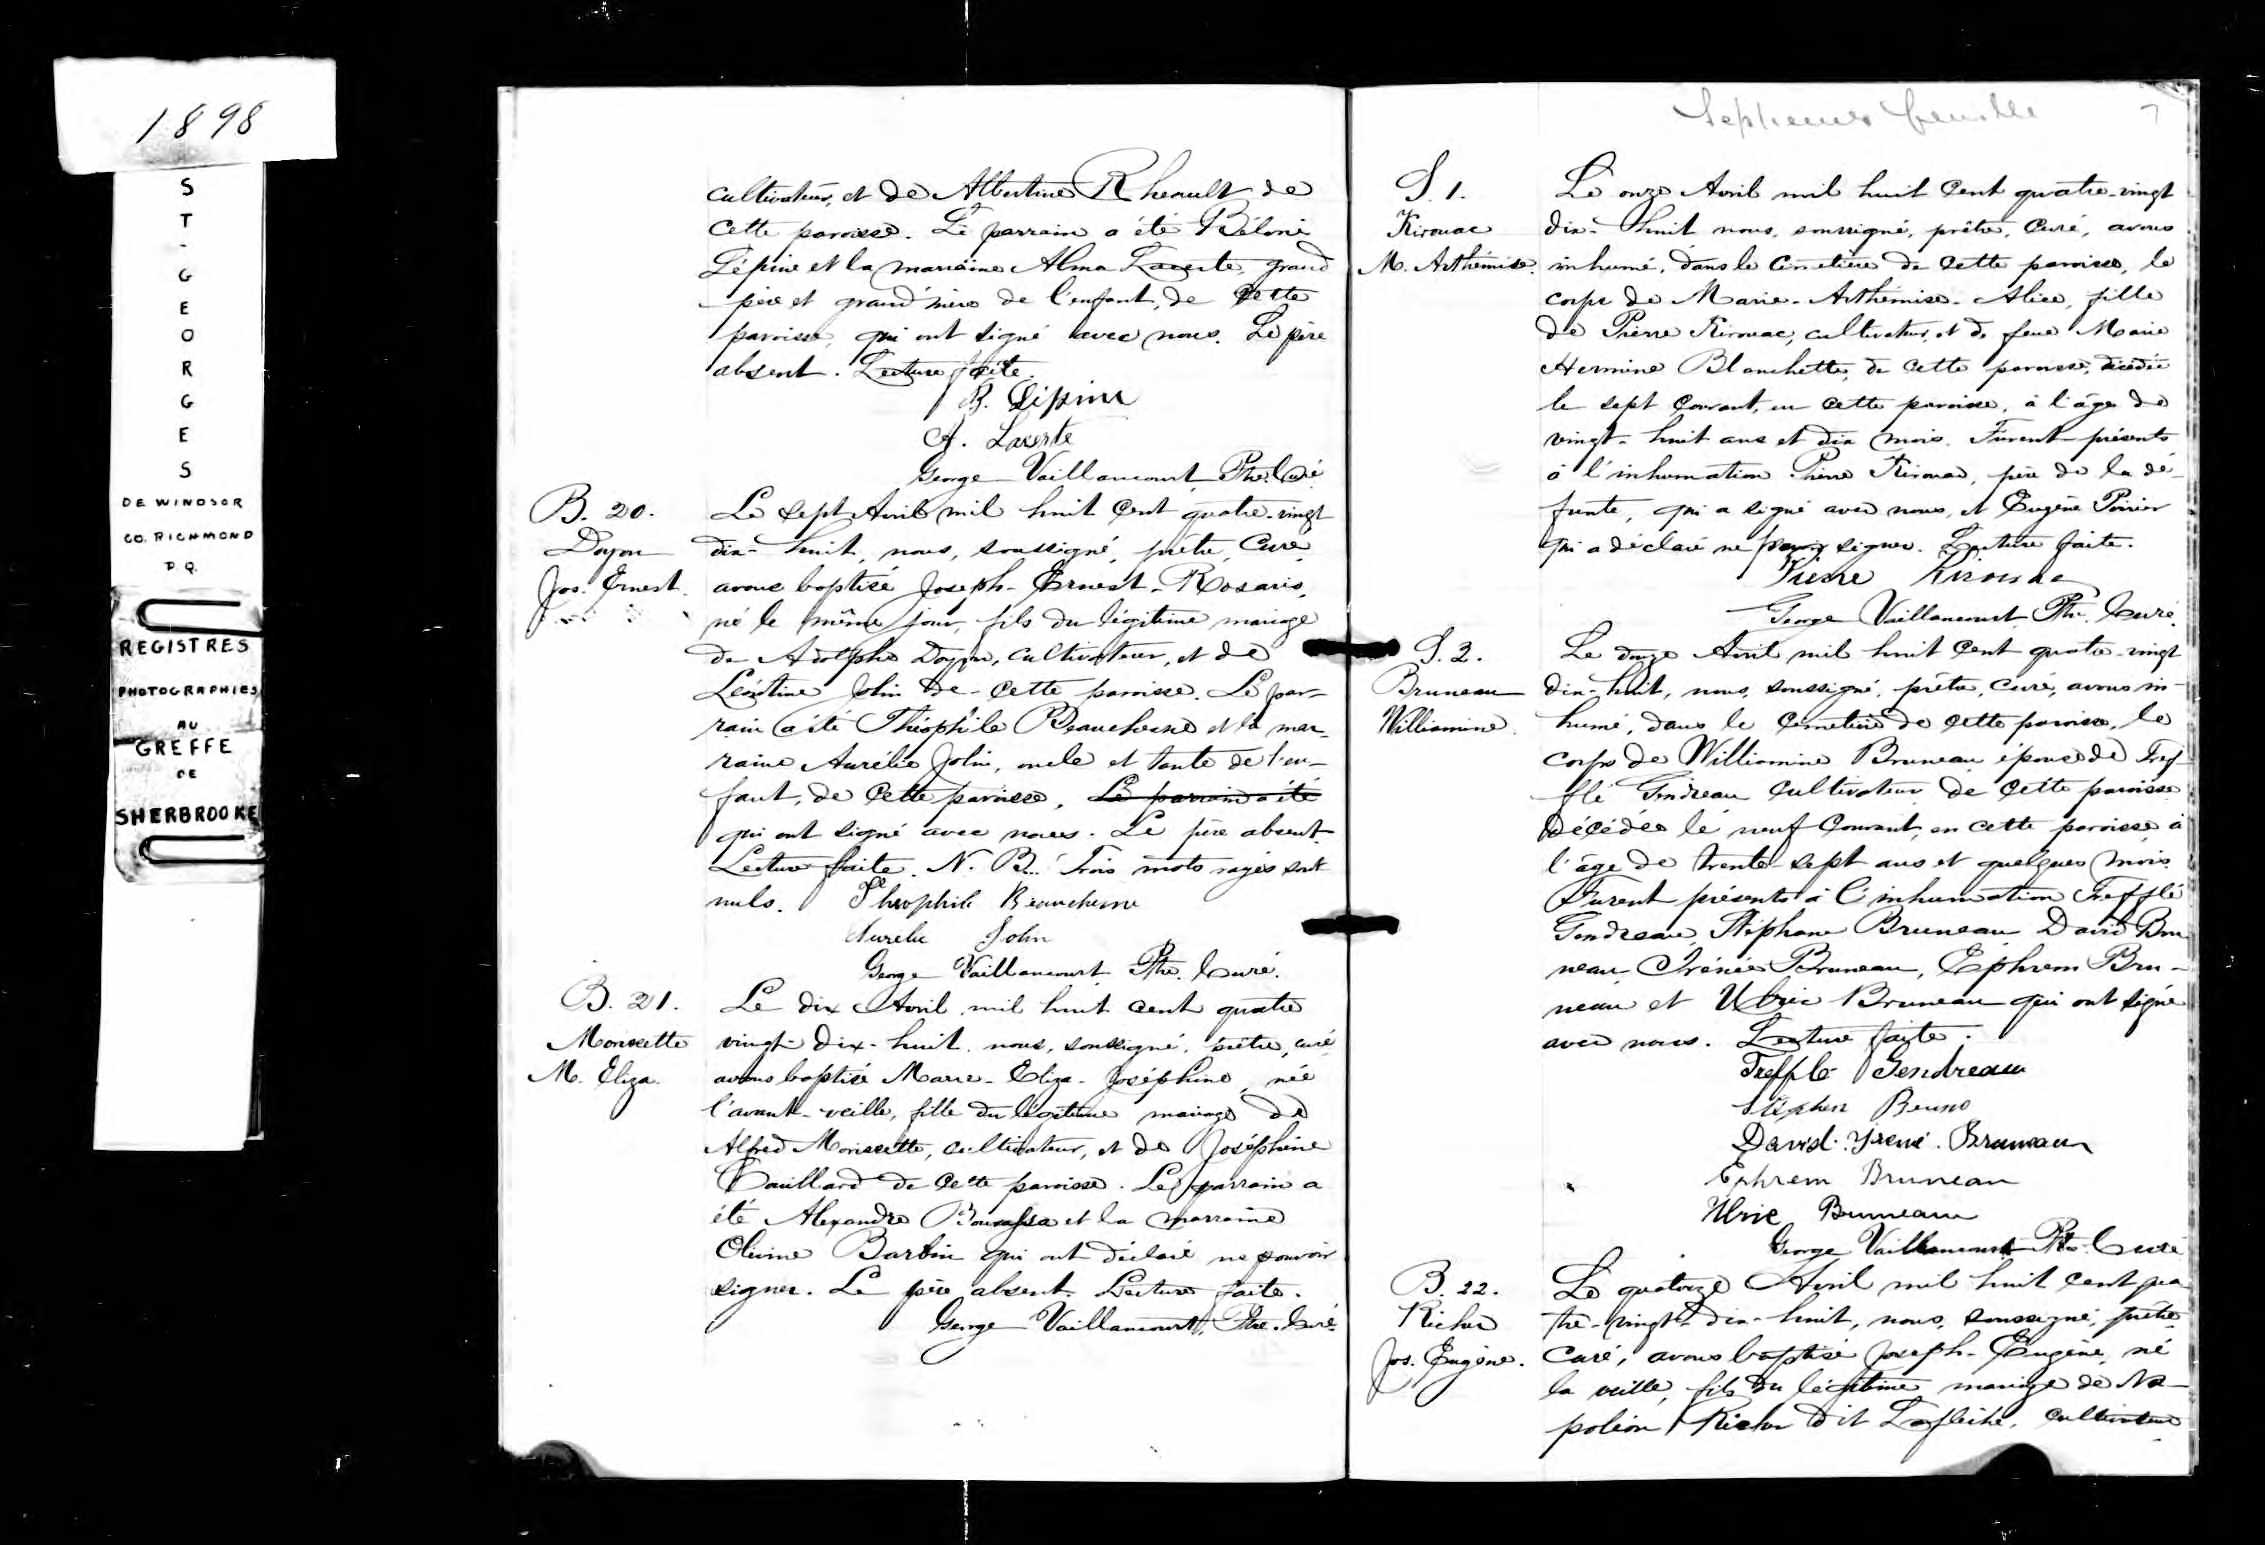 1898
ST-GEORGES
DE WINDSOR
CO. RICHMOND
P.Q.
REGISTRES
PHOTOGRAPHIES
AU
GREFFE
DE
SHERBROOKE
cultivateur, et de Albertine Rheault de
cette paroisse. Le parrain a été Béloni
Lépine et la marraine Alma Lacerte, grand
père et grand'mère de l'enfant, de cette
paroisse, qui ont signé avec nous. Le père
absent. Lecture faite.
B. Lépine
A. Lacerte
George Vaillancourt, Ptre. Curé
B. 20.
Doyon
Jos. Ernest.
Le sept Avril mil huit cent quatre-vingt
dix-huit, nous, soussigné, prêtre, Curé,
avons baptisé Joseph-Ernest-Rosario,
né le même jour, fils du légitime mariage
de Adolphe Doyon, cultivateur, et de
Léontine Jolin de cette paroisse. Le par-
rain a été Théophile Beauchesne et la mar-
raine Aurélie Jolin, oncle et tante de l'en-
fant, de cette paroisse, Le parrain a été
qui ont signé avec nous. Le père absent.
Lecture faite. N. B... Trois mots rayés sont
nuls.
Théophile Beauchesne
Aurelie Jolin
George Vaillancourt, Ptre. Curé.
B. 21.
Morissette
M. Eliza.
Le dix Avril mil huit cent quatre
vingt-dix-huit, nous, soussigné, prêtre, curé
avons baptisé Marie-Eliza-Joséphine, née
l'avant-veille, fille du légitime mariage de
Alfred Morissette, cultivateur, et de Joséphine
de cette paroisse. Le parrain a
été Alexandre Bourassa et la marraine
Olivine Barbin qui ont déclaré ne pouvoir
signer. Le père absent. Lecture faite.
George Vaillancourt, Ptre. Curé.
Septieme feuille
7
S. 1.
Kirouac
M. Arthémise.
Le onze Avril mil huit cent quatre-vingt
dix-huit nous, soussigné, prêtre, Curé, avons
inhumé, dans le cimetière de cette paroisse, le
corps de Marie-Arthémise-Alice, fille
de Pierre Kirouac, cultivateur, et de feue Marie
Hermine Blanchette, de cette paroisse, décédée
le sept Courant, en cette paroisse, à l'âge de
vingt-huit ans et dix mois. Furent présents
à l'inhumation Pierre Kirouac, père de la dé-
funte, qui a signé avec nous, et Eugène Poirier
qui a déclaré ne pouvoir signer. Lecture faite.
Pierre Kirouac
George Vaillancourt Ptre. Curé.
S. 2.
Bruneau
Williamine.
Le douze Avril mil huit cent quatre-vingt
dix-huit, nous, soussigné, prêtre, curé, avons in-
humé, dans le cimetière de cette paroisse, le
corps de Williamine Bruneau épouse de Tref-
flé Gendreau Cultivateur de cette paroisse
Décédée le neuf Courant, en cette paroisse, à
l'âge de trente-sept ans et quelques mois.
Furent présents à l'inhumation Trefflé
Gendreau, Stéphane Bruneau David Bru
neau Irénée Bruneau, Ephrem Bru-
neau et Ulric Bruneau qui ont signé
avec nous. Lecture faite.
Trefflé Gendreau
Stephen Bruno
David. Irené. Bruneau
Ephrem Bruneau
Ulric Bruneau
George Vaillancourt Ptre. Curé
B. 22.
Richer
Jos. Eugène.
Le quatorze Avril mil huit cent qua
tre-vingt-dix-huit, nous, soussigné, prêtre
Curé, avons baptisé Joseph-Eugène, né
la veille, fils du légitime mariage de Na-
poléon Richer dit Lafleche, cultivateur